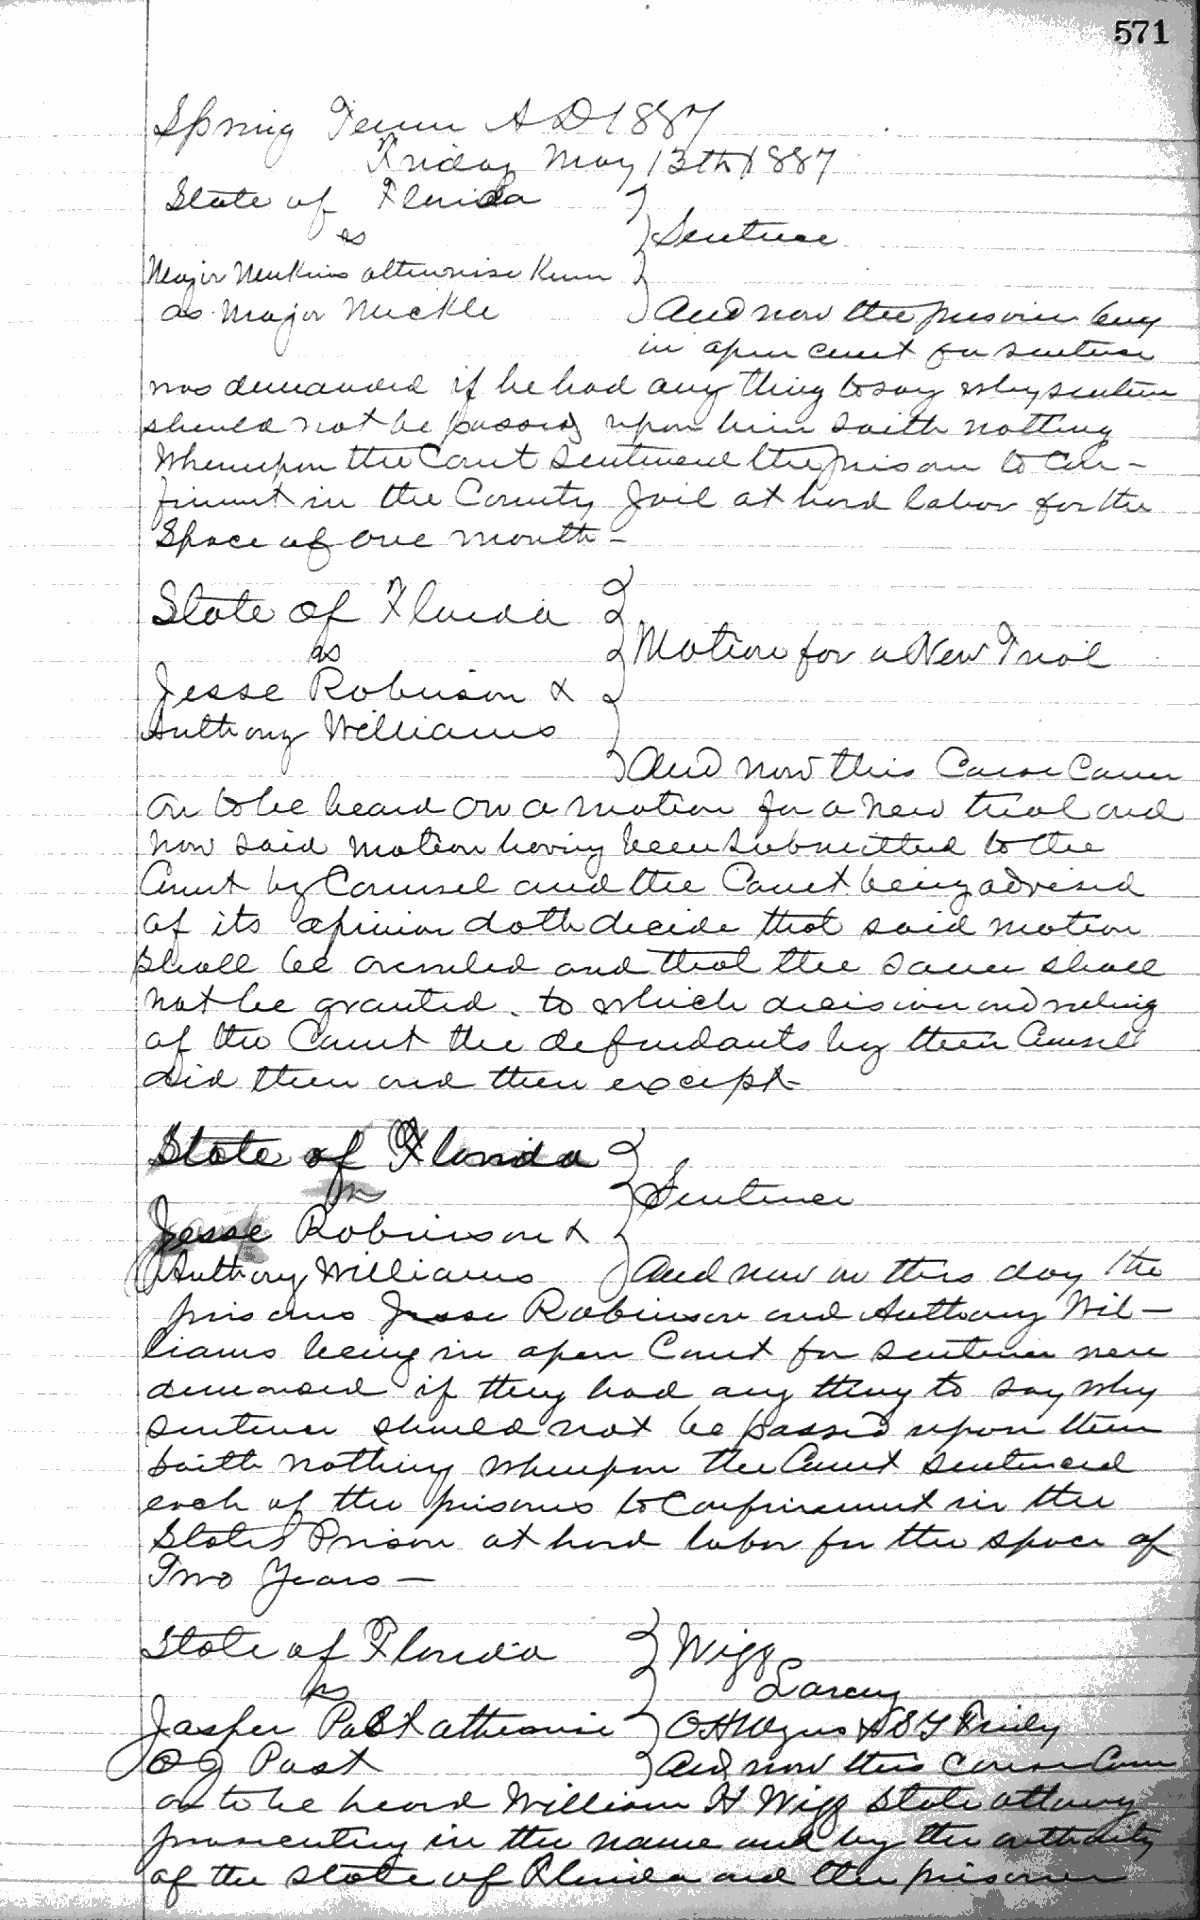 571
Spring Term A D 1887
Friday May 13th 1887
State of Florida
vs
Sentence
Major otherwise Known
as Major Nuckle
And now the prisoner being
in open court for sentence
was demanded if he had any thing to say why sentence
should not be passed upon him saith nothing
Whereupon the Court Sentenced the prisoner to Con-
finment in the County Jail at hard labor for the
Space of one month -
State of Florida
vs
Motion for a New Trial
Jesse Robinson &
Anthony Williams
And now this Cause Came
on to be heard on a motion for a new trial and
now said motion having been submitted to the
Court by Counsel and the Court being advised
of its opinion doth decide that said motion
shall be overruled and that the same shall
not be granted. to which decision and ruling
of the Court the defendants by their Counsel
did then and there except
State of Florida
vs
Sentence
Jesse Robinson &
Anthony Williams
And now on this day the
prisoners Jesse Robinson and Anthony Wil-
liams being in open Court for sentence were
demanded if they had any thing to say why
sentence should not be passed upon them
saith nothing whereupon the Court sentenced
each of the prisoners to Confinement in the
States Prison at hard labor for the space of
Two Years -
State of Florida
vs
Wigg
Larceny
Jasper Post otherwise
O J Post
And now this cause Came
on to be heard William H Wigg State attorney
prosecuting in the name and by the authority
of the state of Florida and the prisoner